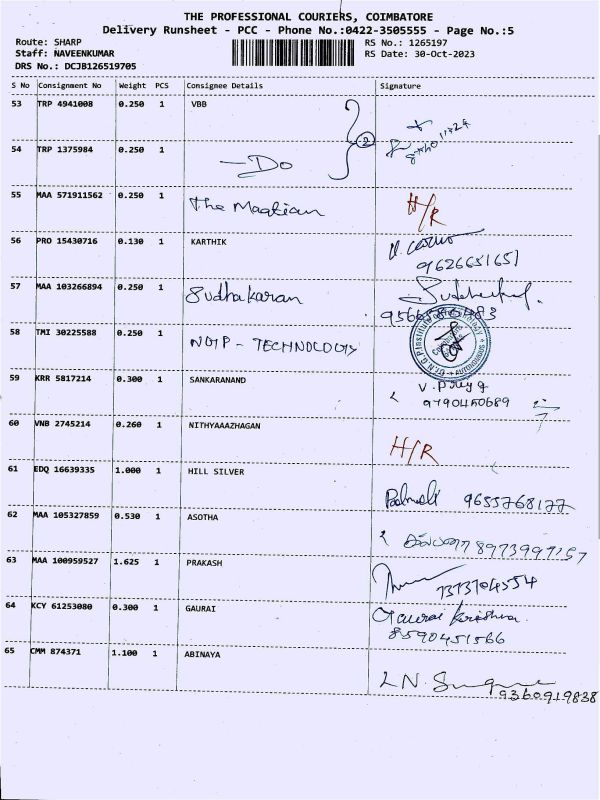 THE PROFESSIONAL COURIERS, COIMBATORE
Delivery Runsheet - PCC - Phone No.:0422-3505555 - Page No.:5
Route: SHARP RS No.: 1265197
Staff: NAVEENKUMAR RS Date: 30-Oct-2023
DRS No.: DCJB126519705
S No Consignment No Weight PCS Consignee Details Signature
53 TRP 4941008 0.250 1 VBB
2
54 TRP 1375984 0.250 1 — Do
55 MAA 571911562 0.250 1 The Magtian H/R
56 PRO 15430716 0.130 1 KARTHIK
9626651651
57 MAA 103266894 0.250 1 Sudhakaran
58 TMI 30225588 0.250 1 NGIP - TECHNOLOGY
59 KRR 5817214 0.300 1 SANKARANAND V. Priya
9790450689
60 VNB 2745214 0.260 1 NITHYAAAZHAGAN H/R
61 EDQ 16639335 1.000 1 HILL SILVER 9655768177
62 MAA 105327859 0.530 1 ASOTHA 8973997157
63 MAA 100959527 1.625 1 PRAKASH 7373704554
64 KCY 61253080 0.300 1 GAURAI Gaurai Krishna
8590451566
65 CMM 874371 1.100 1 ABINAYA L N.
9360919838